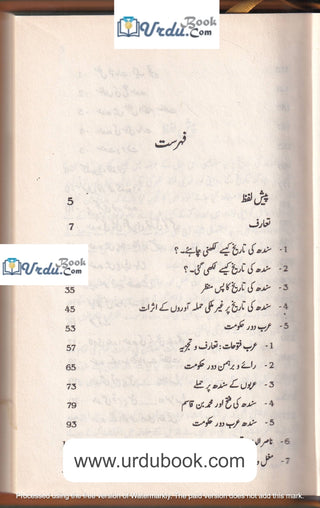 UrduBook.com
فہرست
پیش لفظ 5
تعارف 7
1- سندھ کی تاریخ کیسے لکھنی چاہئے۔؟
2- سندھ کی تاریخ کیسے لکھی گئی۔؟
UrduBook.com
3- سندھ کی تاریخ کا پس منظر 35
4- سندھ کی تاریخ پر غیر ملکی حملہ آوروں کے اثرات 45
5- عرب دور حکومت 53
1- عرب فتوحات: تعارف و تجزیہ 57
2- رائے و برہمن دور حکومت 65
3- عربوں کے سندھ پر حملے 73
4- سندھ کی فتح اور محمد بن قاسم 79
5- سندھ عرب دور حکومت 93
6-
7- مغل
www.urdubook.com
Processed using the free version of Watermarkly. The paid version does not add this mark.